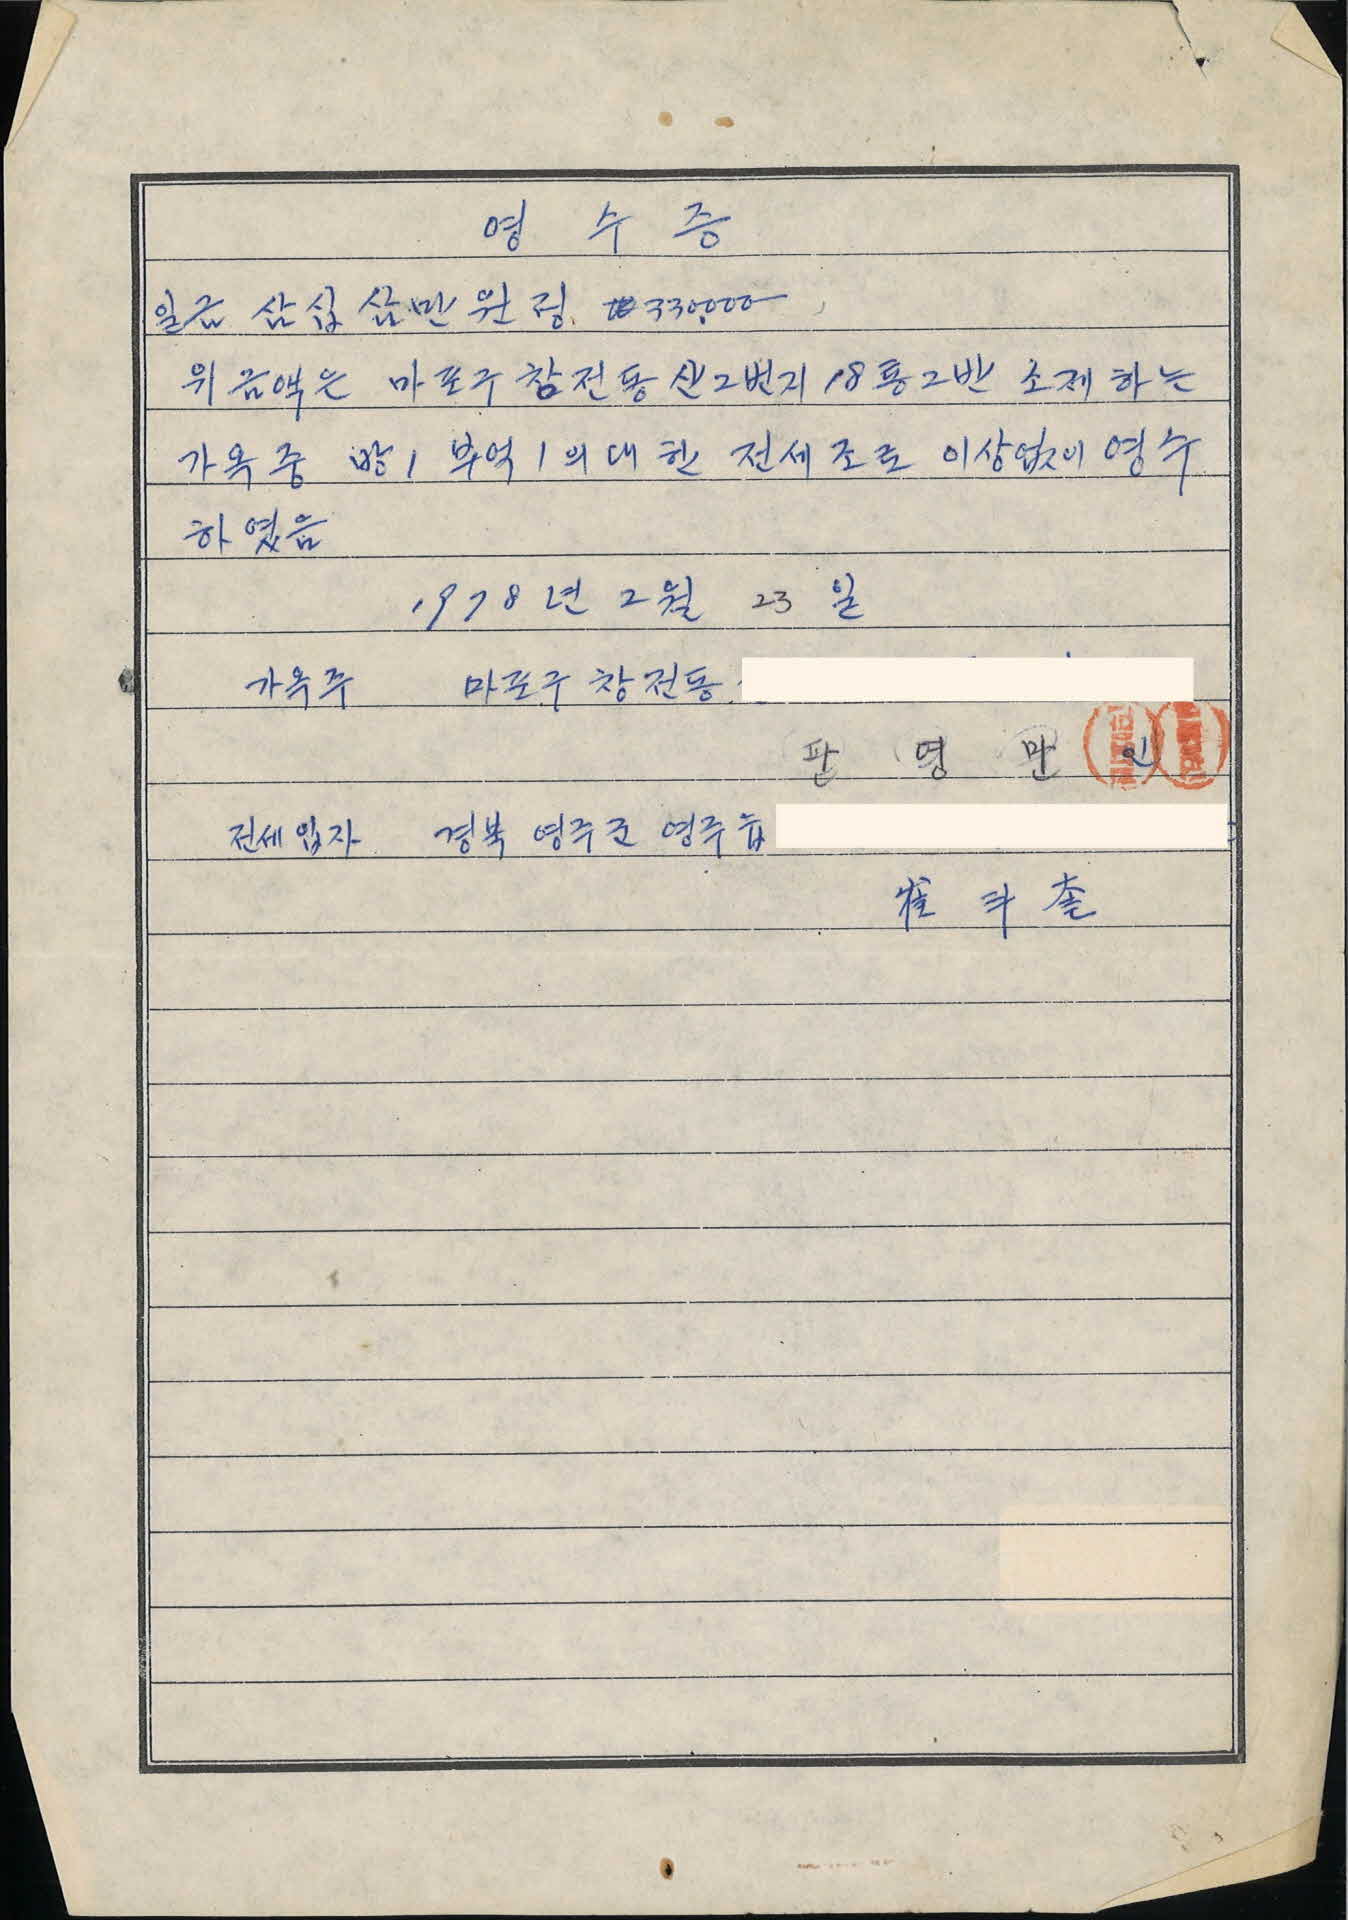 영 수 증
일금 삼십삼만원정. ₩330,000
위 금액은 마포구 창전동 산2번지 18통2반 소제하는
가옥중 방1 부엌1의 대한 전세조로 이상없이 영수
하였음
1978년 2월 23일
가옥주 마포구 창전동
판 영 만 인
전세입자 경북 영주군 영주읍
崔 斗